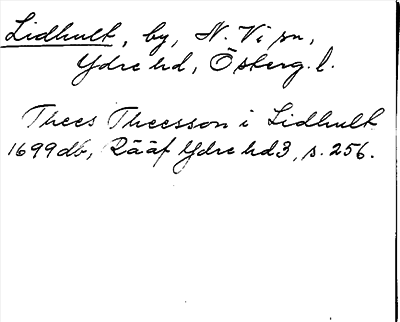 Lidhult, by, N. Vi sn,
Ydre hd, Österg. l.
Thees Theesson i Lidhult
1699 db, Rääf Ydre hd 3, s. 256.